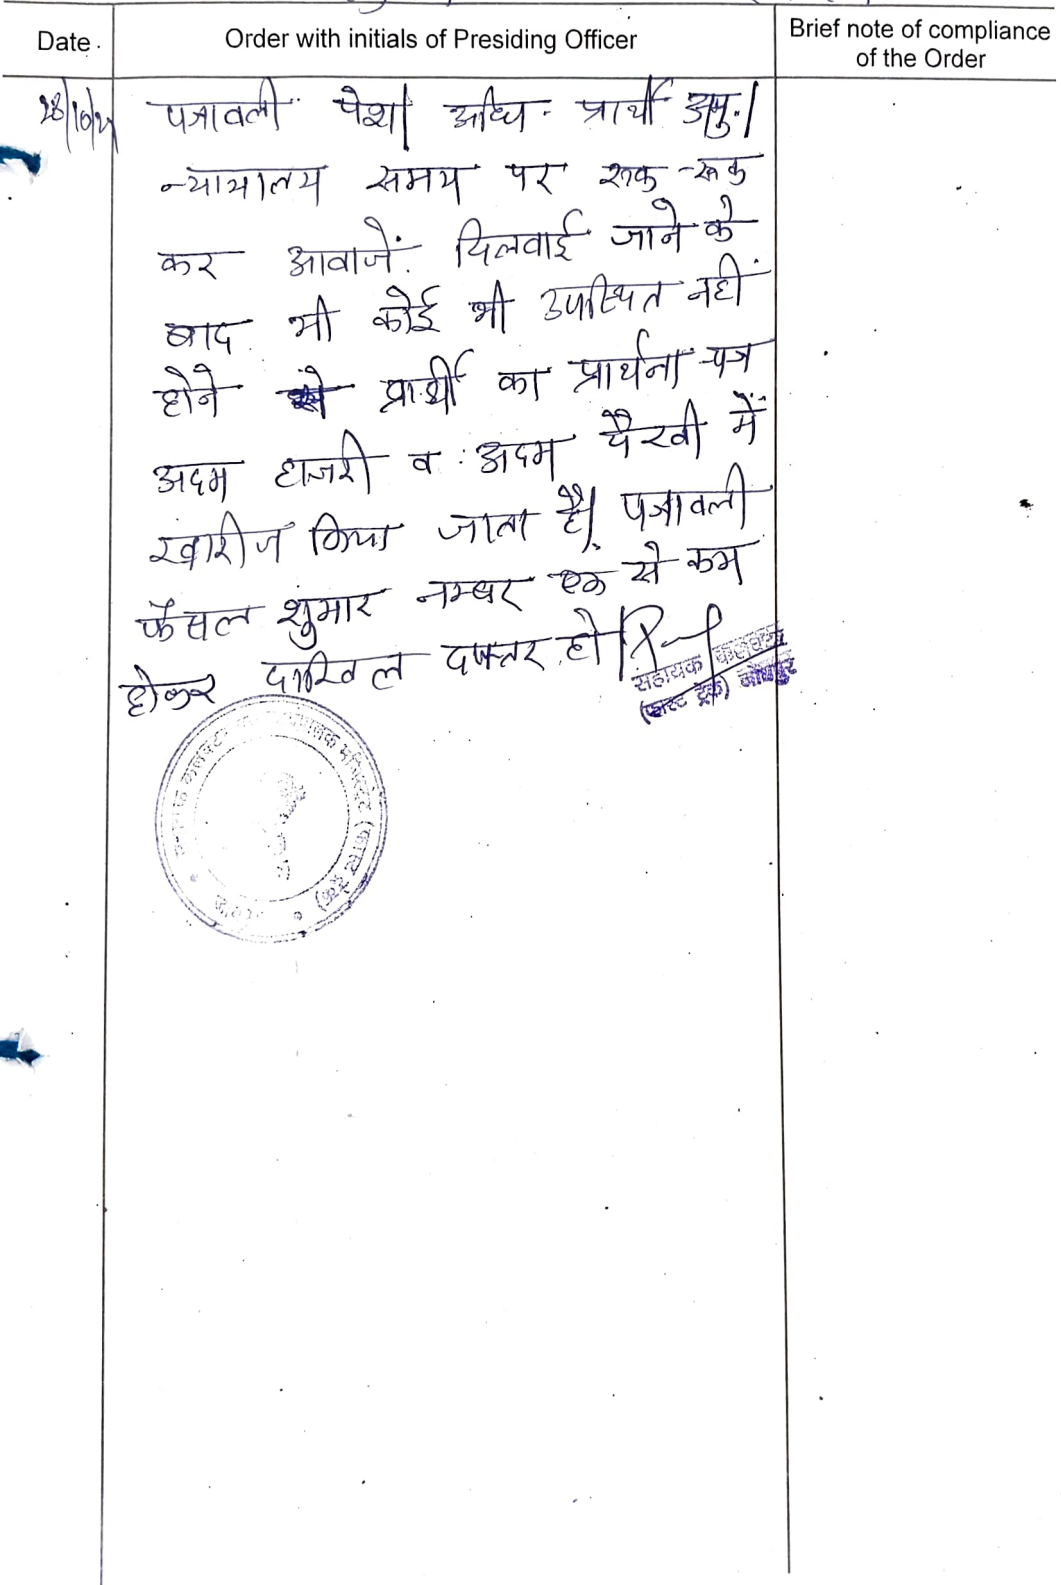 Date
Order with initials of Presiding Officer
Brief note of compliance
of the Order
पत्रावली पेश। अधि. प्रार्थी अनु.।
न्यायालय समय पर रूक-रूक
कर आवाजें दिलवाई जाने के
बाद भी कोई भी उपस्थित नहीं
होने से प्रार्थी का प्रार्थना-पत्र
अदम हाजरी व अदम पैरवी में
खारीज किया जाता है। पत्रावली
फैसल शुमार नम्बर एक से कम
होकर दाखिल दफ्तर हो।
सहायक कलक्टर
(फास्ट ट्रेक) जोधपुर